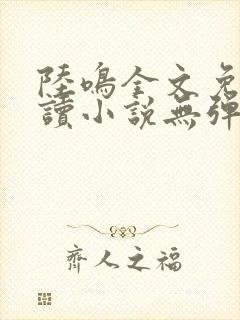 陸鳴全文免
讀小說無彈
齊人之福